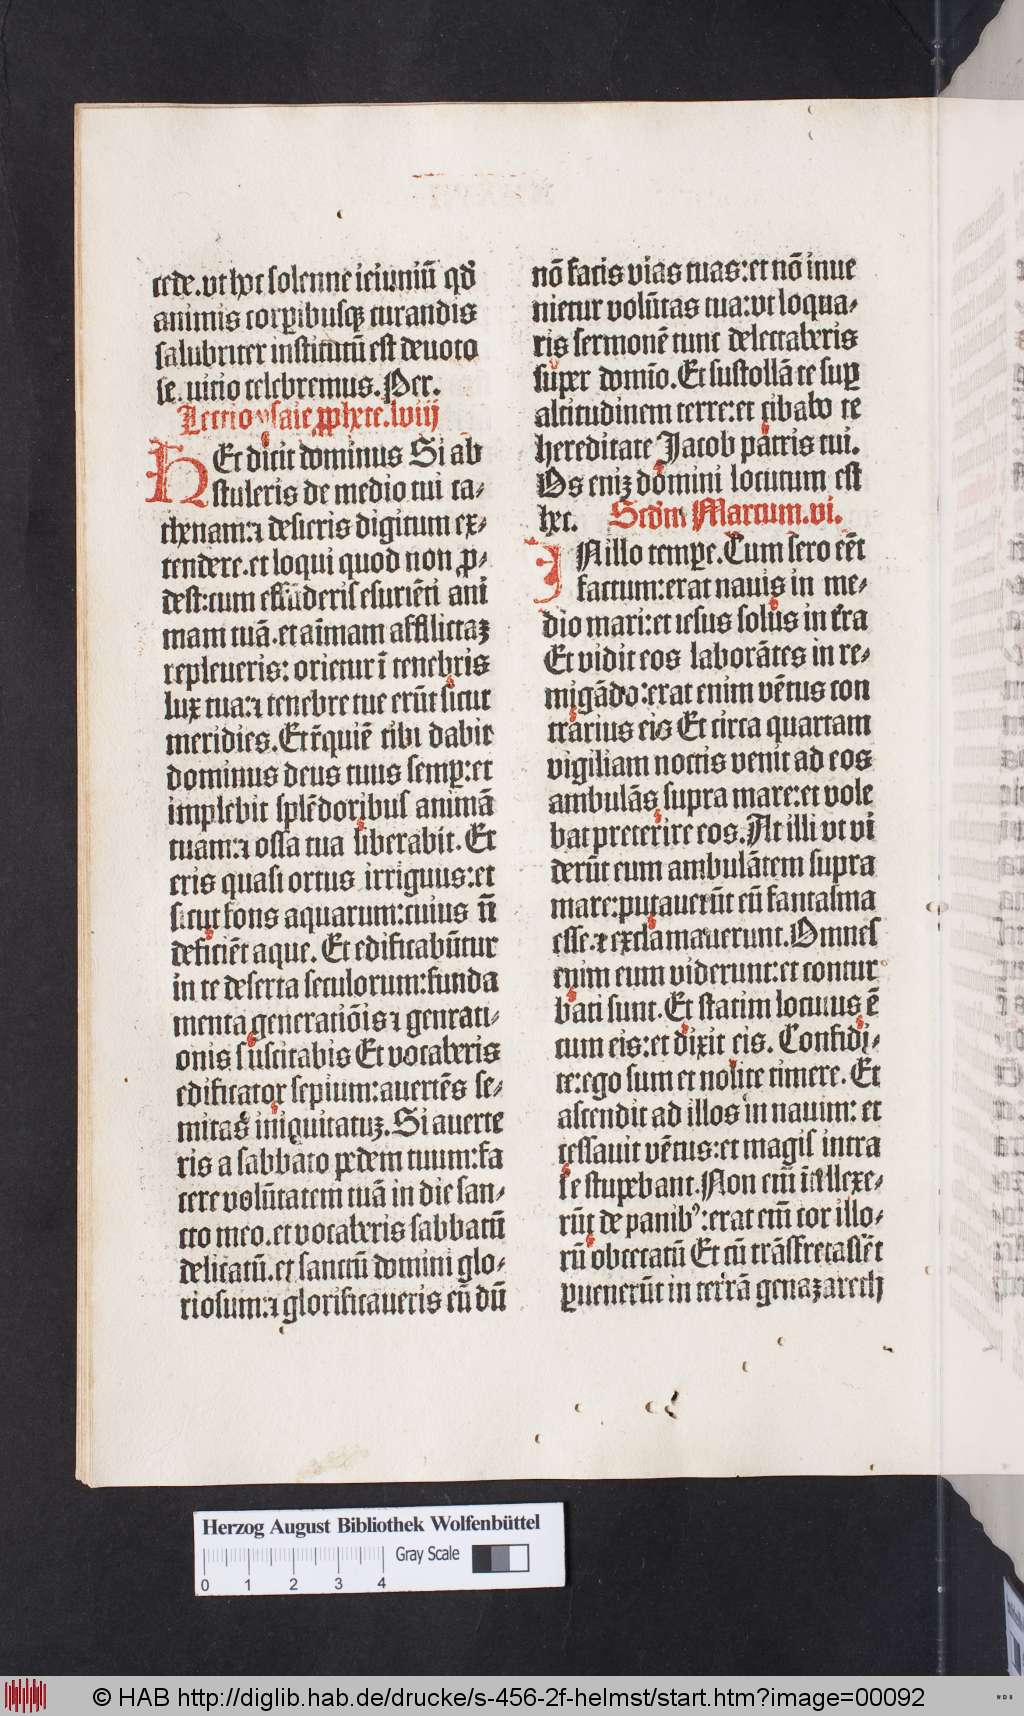 cede. vt hoc solenne ieiuniū qd̕
animis corꝑibusqꝫ curandis
salubriter institutū est deuoto
se.uitio celebremus. Per.
Lectio ysaie ꝓphete. lviij
HEt dicit dominus Si ab
stuleris de medio tui ca⸗
thenam:⁊ desieris digitum ex⸗
tendere. et loqui quod non ꝓ⸗
dest:cum effūderis esuriēti ani
mam tuā. et aīmam afflictaꝫ
repleueris: orietur ī tenebris
lux tua:⁊ tenebre tue erūt sicut
meridies. Et r̄quiē tibi dabit
dominus deus tuus semꝑ:et
implebit splēdoribus animā
tuam:⁊ ossa tua liberabit. Et
eris quasi ortus irriguus:et
sicut fons aquarum:cuius nō
deficiēt aque. Et edificabūtur
in te deserta seculorum:funda
menta generatiōis ⁊ genrati⸗
onis suscitabis Et vocaberis
edificator sepium:auertēs se⸗
mitas iniquitatuꝫ. Si auerte
ris a sabbato pedem tuum:fa
cere volūtatem tuā in die san⸗
cto meo. et vocaberis sabbatū
delicatū. et sanctū domini glo⸗
riosum:⁊ glorificaueris eū dū
nō facis vias tuas:et nō inue
nietur volūtas tua:vt loqua⸗
ris sermonē tunc delectaberis
super domīo. Et sustollā te suꝑ
altitudinem terre:et cibabo te
hereditate Jacob patris tui.
Os eniꝫ domini locutum est
hec. Scd̄m Marcum. vi.
IN illo tempe. Cum sero eēt
factum:erat nauis in me⸗
dio mari:et iesus solus in t̄ra
Et vidit eos laborātes in re⸗
migādo:erat enim vētus con
trarius eis Et circa quartam
vigiliam noctis venit ad eos
ambulās supra mare:et vole
bat preterire eos. At illi vt vi
derūt eum ambulātem supra
mare:putauerūt eū fantasma
esse. ⁊ exclamauerunt. Omnes
enim eum viderunt:et contur
bati sunt. Et statim locutus ē
cum eis:et dixit eis. Confidi⸗
te:ego sum et nolite timere. Et
ascendit ad illos in nauim: et
cessauit vētus:et magis intra
se stupebant. Non em̄ ītellexe⸗
rūt de panibꝰ:erat em̄ cor illo⸗
rū obcecatū Et cū trāsfretassēt
ꝑuenerūt in terrā genazareth
Herzog August Bibliothek Wolfenbüttel
0 1 2 3 4
Gray Scale
© HAB http://diglib.hab.de/drucke/s-456-2f-helmst/start.htm?image=00092